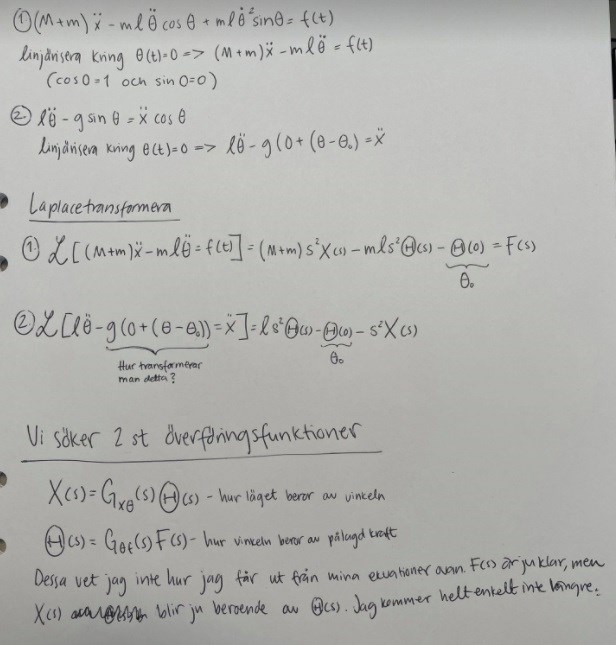 ① (M+m)ẍ - mlθ̈ cos θ + mlθ̇² sinθ = f(t)
linjärisera kring θ(t)=0 => (M+m)ẍ - mlθ̈ = f(t)
(cos 0 = 1 och sin 0 = 0)
② lθ̈ - g sin θ = ẍ cos θ
linjärisera kring θ(t)=0 => lθ̈ - g(0+(θ-θ₀) = ẍ
Laplacetransformera
① ℒ[(M+m)ẍ - mlθ̈ = f(t)] = (M+m)s²X(s) - mls²Θ(s) - Θ(0) = F(s)
θ₀
② ℒ[lθ̈ - g(0+(θ-θ₀)) = ẍ] = ls²Θ(s) - Θ(0) - s²X(s)
Hur transformerar
man detta?
θ₀
Vi söker 2 st överföringsfunktioner
X(s) = G_xθ(s) Θ(s) - hur läget beror av vinkeln
Θ(s) = G_θf(s) F(s) - hur vinkeln beror av pålagd kraft
Dessa vet jag inte hur jag får ut från mina ekvationer ovan. F(s) är ju klar, men
X(s) blir ju beroende av Θ(s). Jag kommer helt enkelt inte längre.